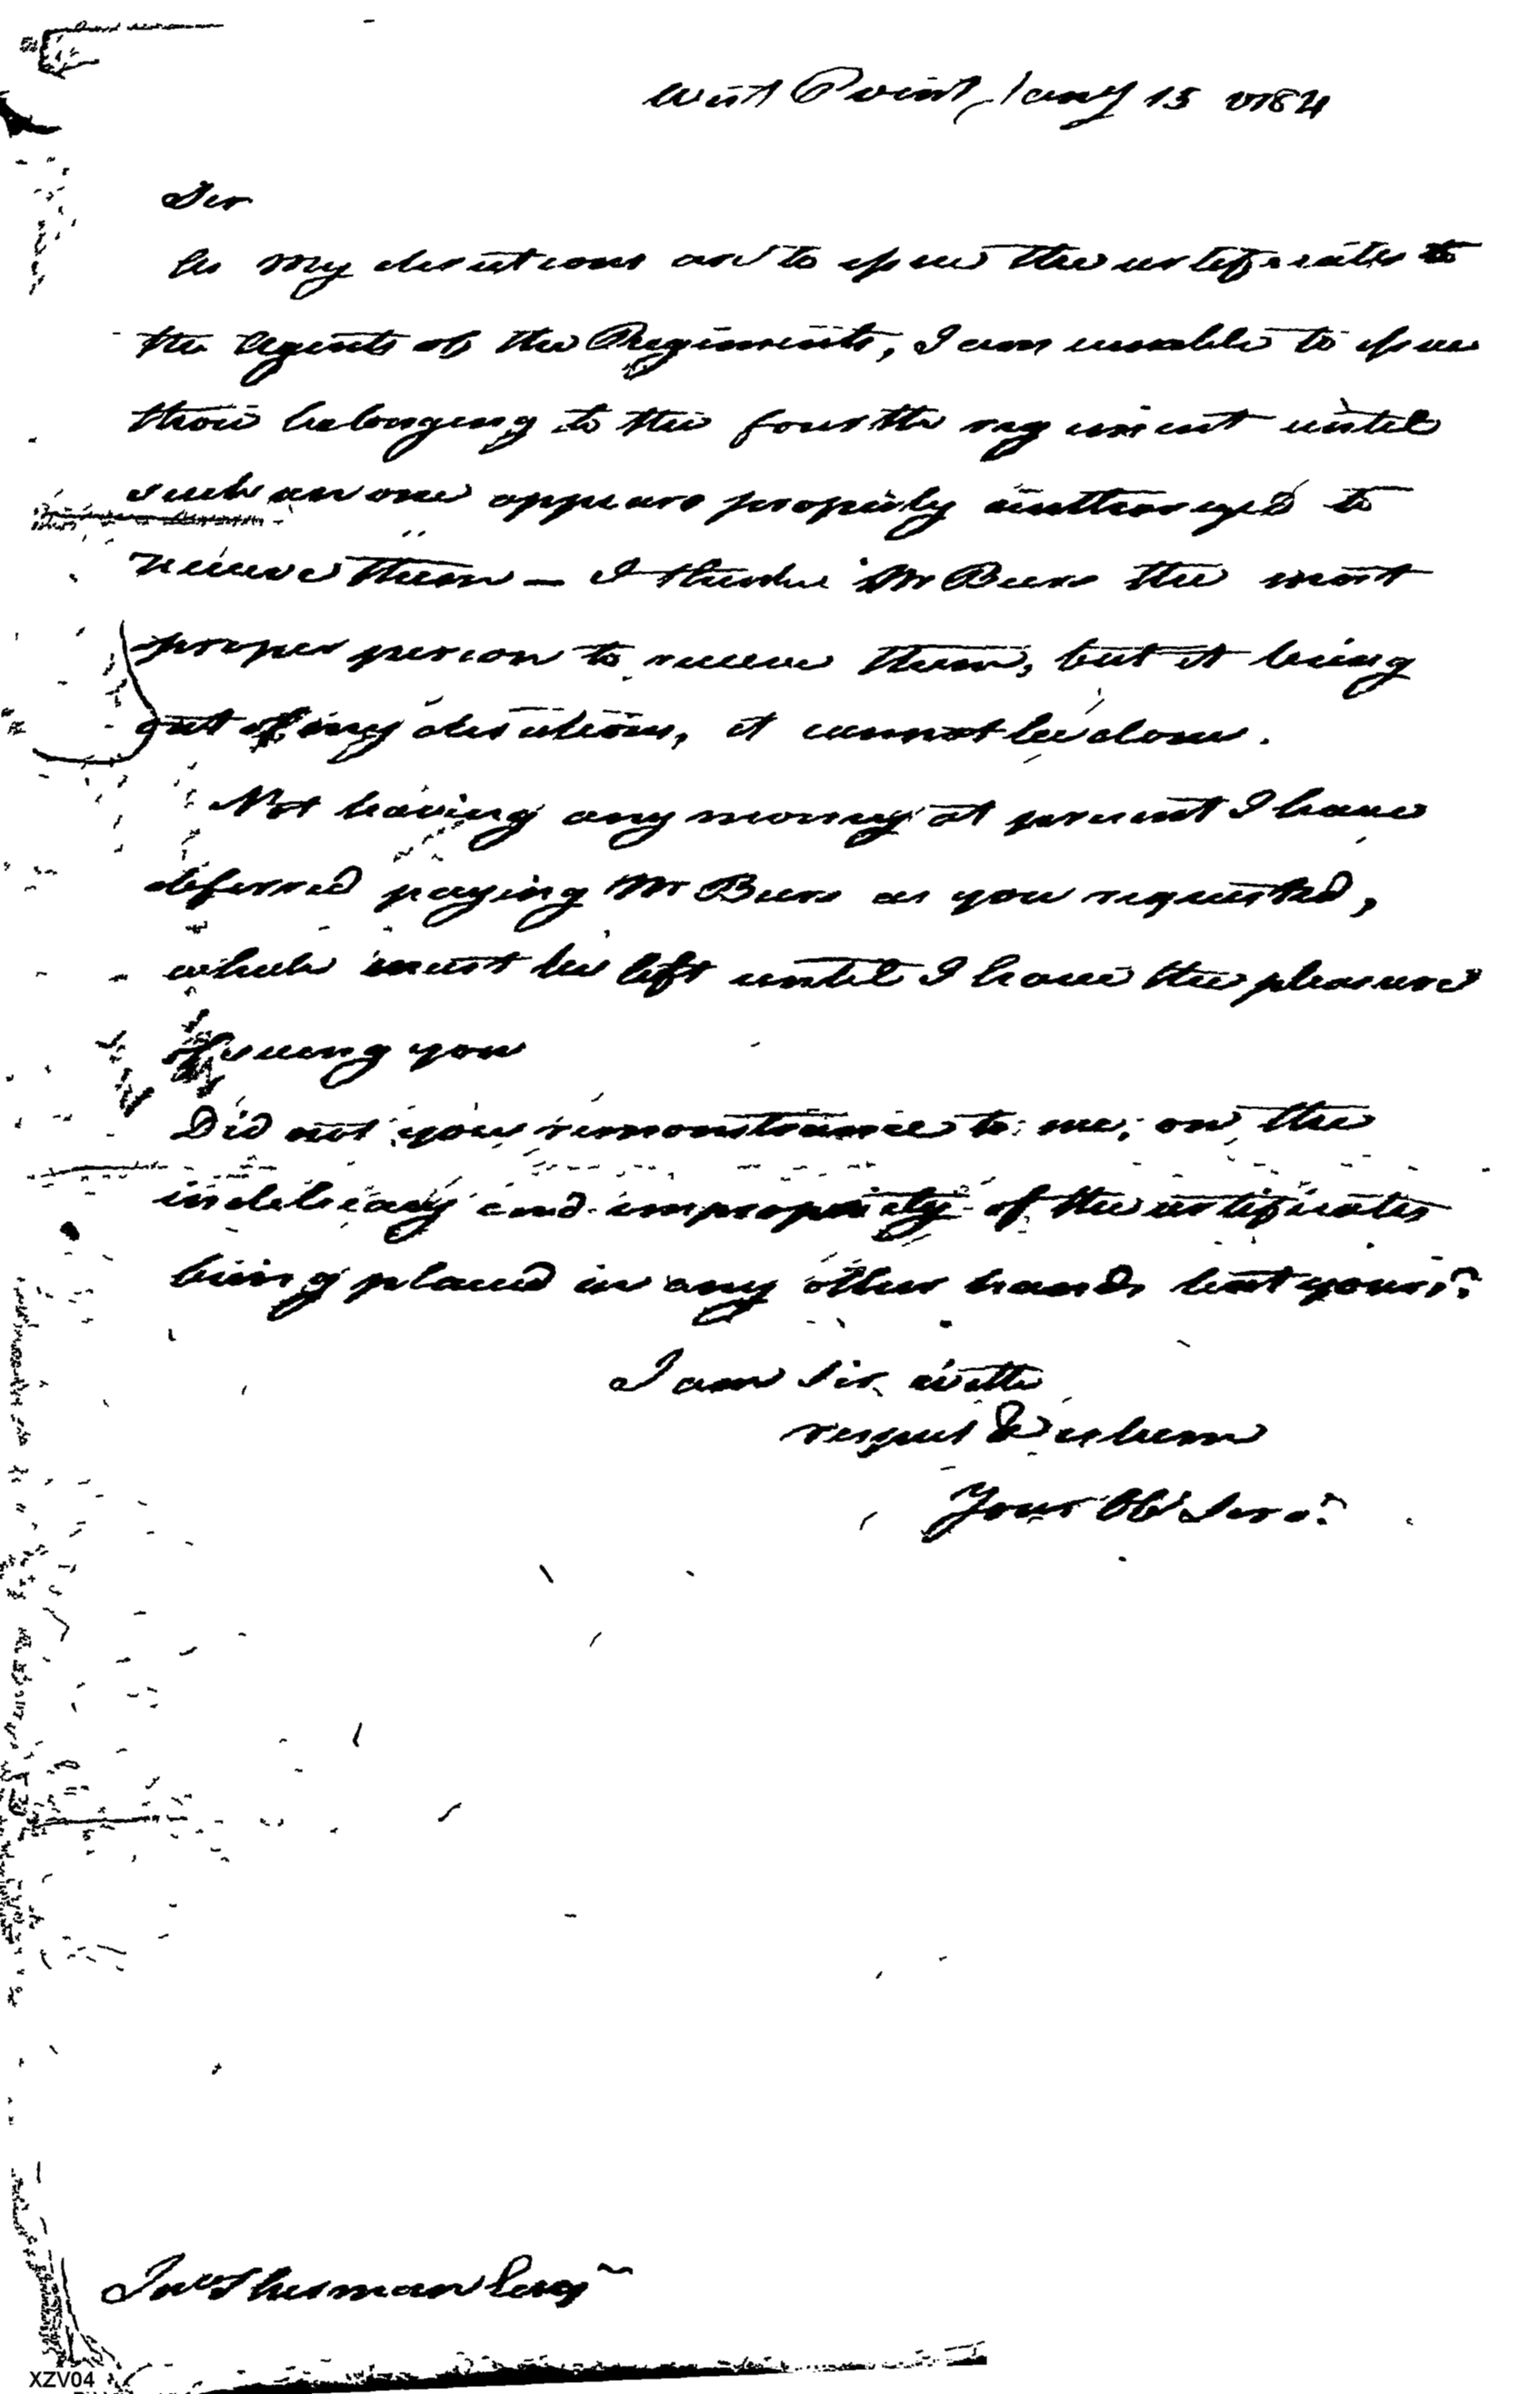 West Point, Jany 15 1784
Sir
As my directions are to issue the certificates to
the Agents of the Regiments, I am unable to issue
those belonging to the fourth regiment until
such an one appears properly authorized to
receive them — I think Mr Beers the most
proper person to receive them, but it being
out of my directions, it cannot be done.
Not having any money at present I have
deferred paying Mr Beers as you requested,
which must be left until I have the pleasure
of seeing you
Did not you remonstrance to me, on the
indelicacy and impropriety of the certificates
being placed in any other hands but yours?
I am Sir with
respect & esteem
Your Ob Serv.t
Jno Sherman Esqr
XZV04